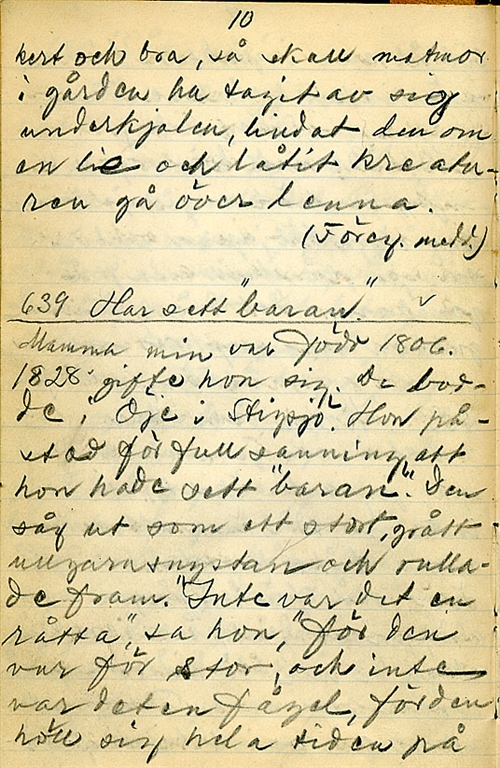 10
kert och bra, så skall matmor
i gården ha tagit av sig
underkjolen, lindat den om
en lie och låtit kreatu-
ren gå över denna.
(Föreg. medd.)
639 Har sett "baran".
Mamma min var född 1806.
1828 gifte hon sig. De bod-
de i Öje i Stigsjö. Hon på-
stod för full sanning att
hon hade sett "baran". Den
såg ut som ett stort, grått
ullgarnsnystan och rulla-
de fram. "Inte var det en
råtta", sa hon, "för den
var för stor, och inte
var det en fågel, för den
höll sig hela tiden på